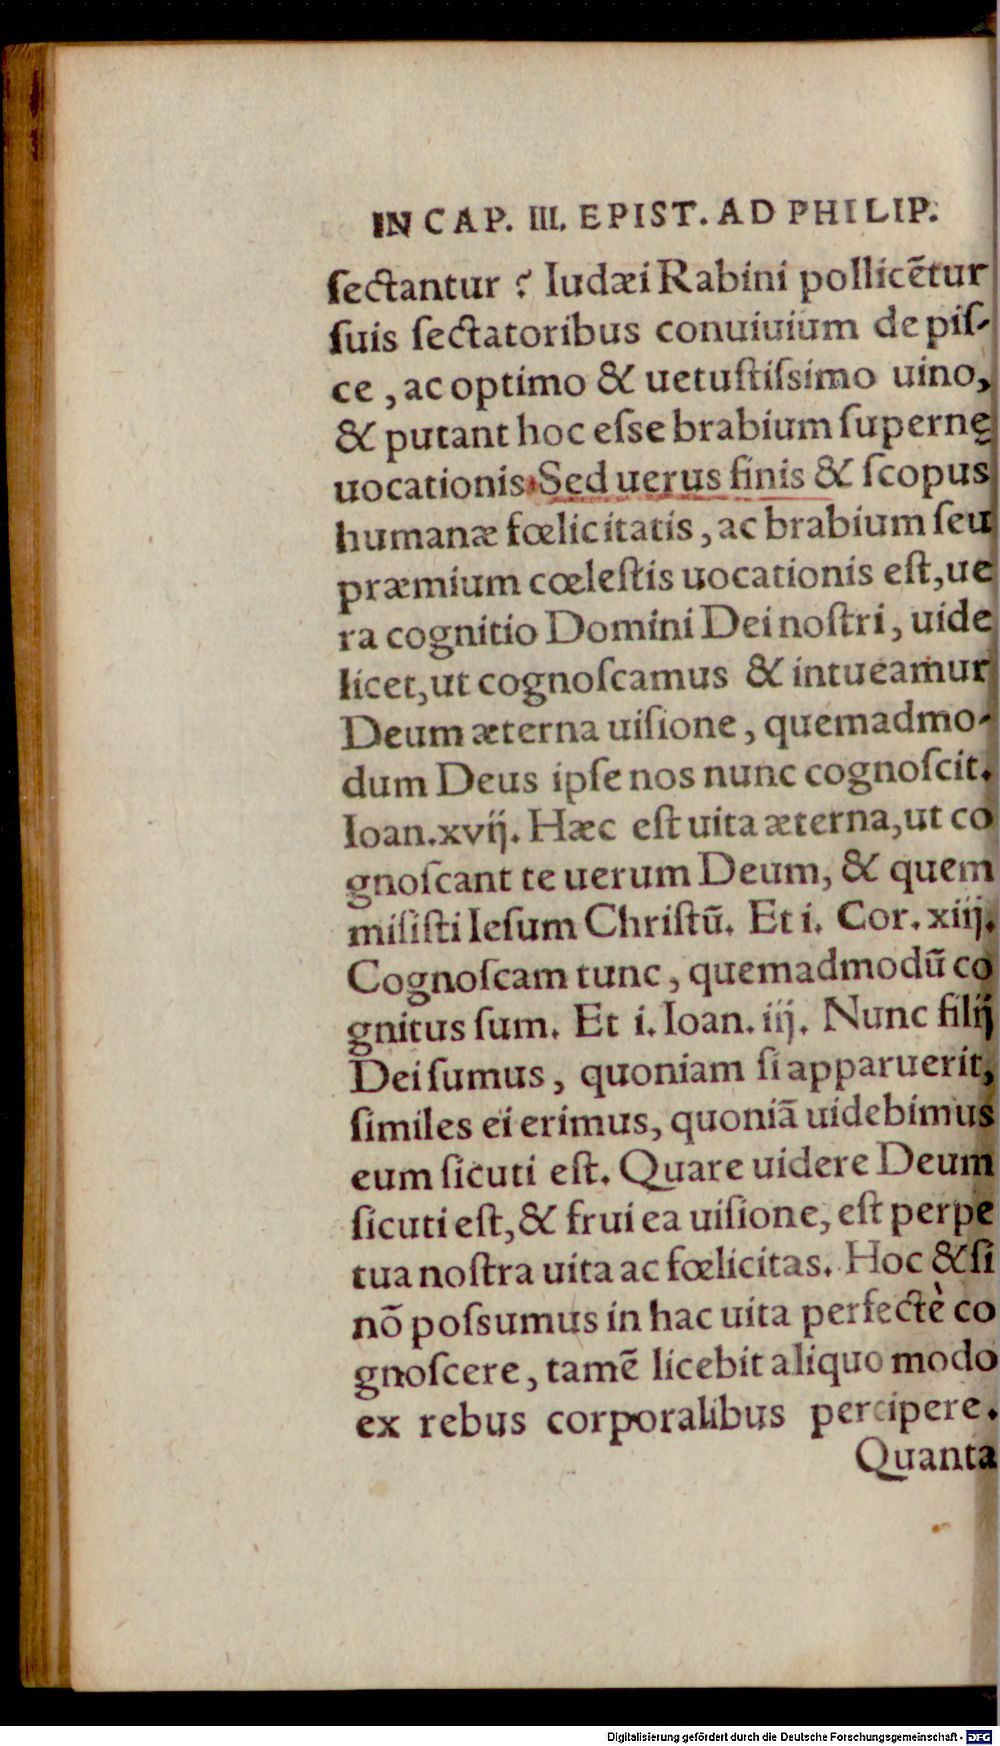 IN CAP. III. EPIST. AD PHILIP.
ſectantur ? Iudæi Rabini pollicẽtur
ſuis ſectatoribus conuiuium de piſ-
ce , ac optimo & uetuſtiſsimo uino,
& putant hoc eſse brabium ſupernę
uocationis. Sed uerus finis & ſcopus
humanæ fœlicitatis , ac brabium ſeu
præmium cœleſtis uocationis eſt, ue
ra cognitio Domini Dei noſtri , uide
licet, ut cognoſcamus & intueamur
Deum æterna uiſione , quemadmo-
dum Deus ipſe nos nunc cognoſcit.
Ioan. xvij. Hæc eſt uita æterna, ut co
gnoſcant te uerum Deum, & quem
miſiſti Ieſum Chriſtũ. Et i. Cor. xiij.
Cognoſcam tunc , quemadmodũ co
gnitus ſum. Et i. Ioan. iij. Nunc filij
Dei ſumus , quoniam ſi apparuerit,
ſimiles ei erimus, quoniã uidebimus
eum ſicuti eſt. Quare uidere Deum
ſicuti eſt, & frui ea uiſione, eſt perpe
tua noſtra uita ac fœlicitas. Hoc & ſi
nõ poſsumus in hac uita perfectè co
gnoſcere , tamẽ licebit aliquo modo
ex rebus corporalibus percipere.
Quanta
Digitalisierung gefördert durch die Deutsche Forschungsgemeinschaft - DFG